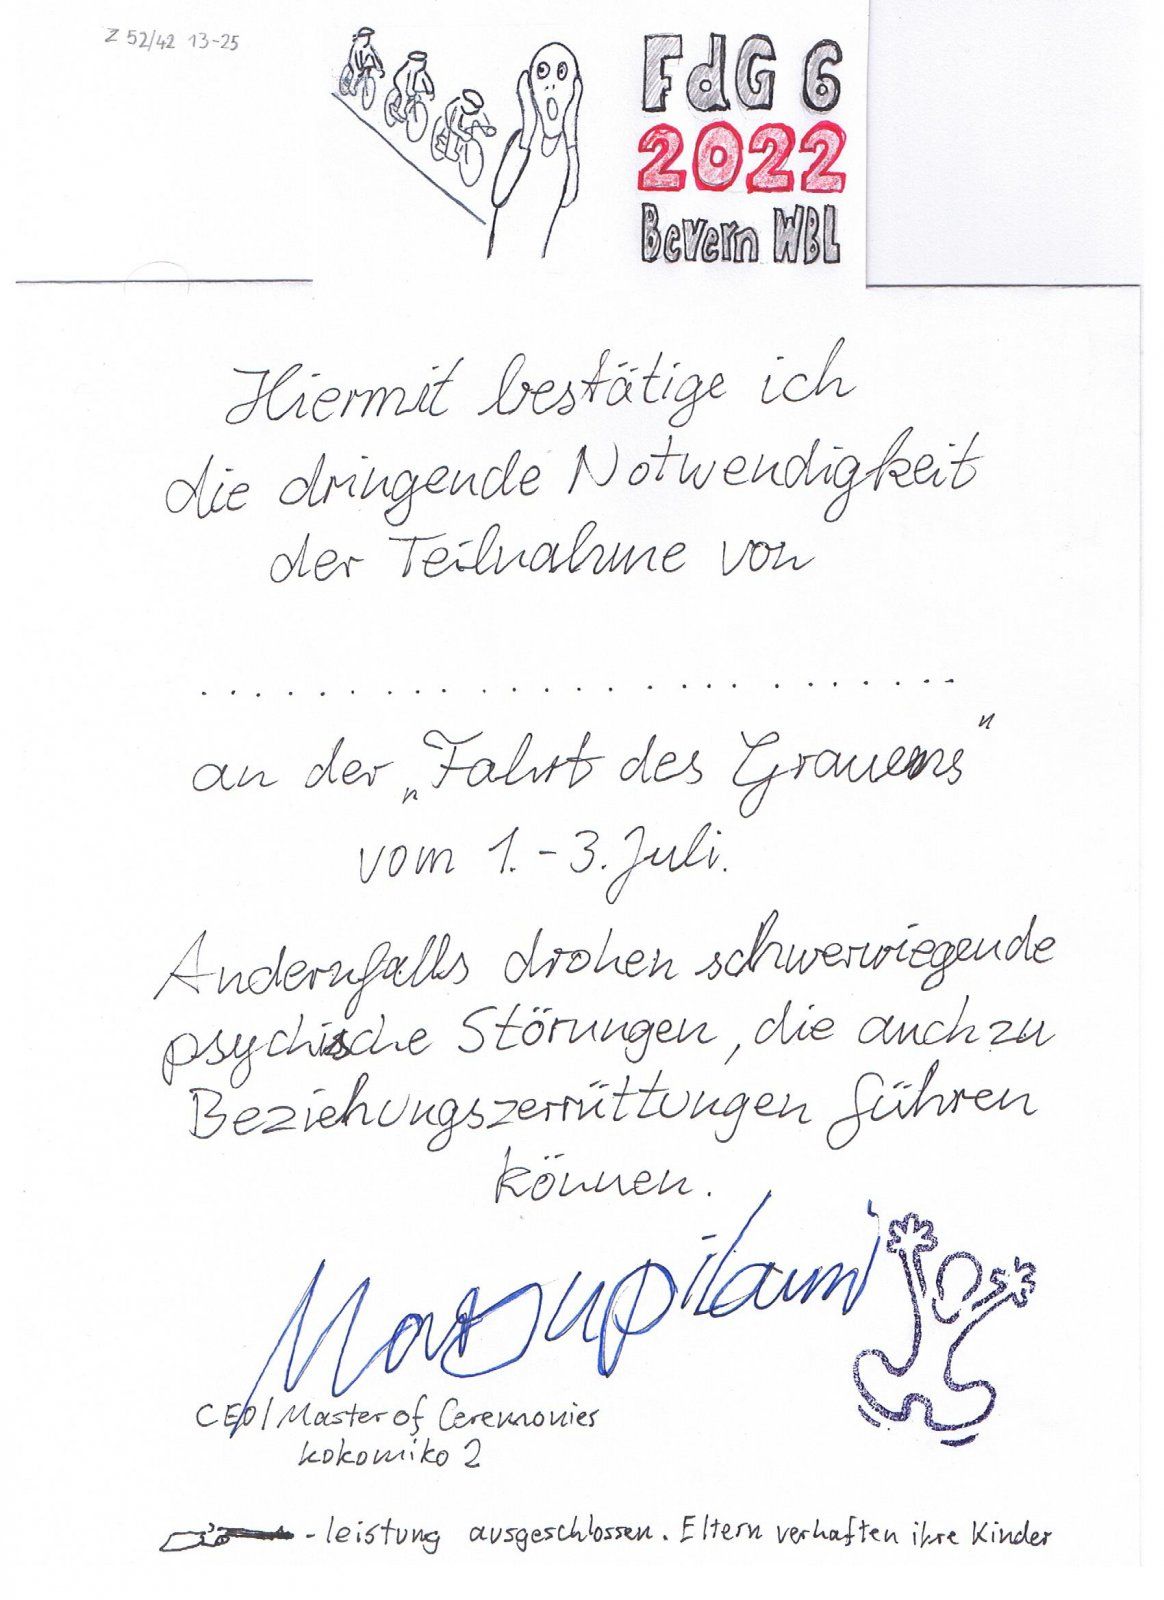 Z 52/42 13-25
FdG 6
2022
Bevern WBL
Hiermit bestätige ich
die dringende Notwendigkeit
der Teilnahme von
..............................
an der „Fahrt des Grauens"
vom 1.-3. Juli.
Andernfalls drohen schwerwiegende
psychische Störungen, die auch zu
Beziehungszerrüttungen führen
können.
Marsupilami
CEO/Master of Ceremonies
kokomiko 2
-leistung ausgeschlossen. Eltern verhaften ihre Kinder